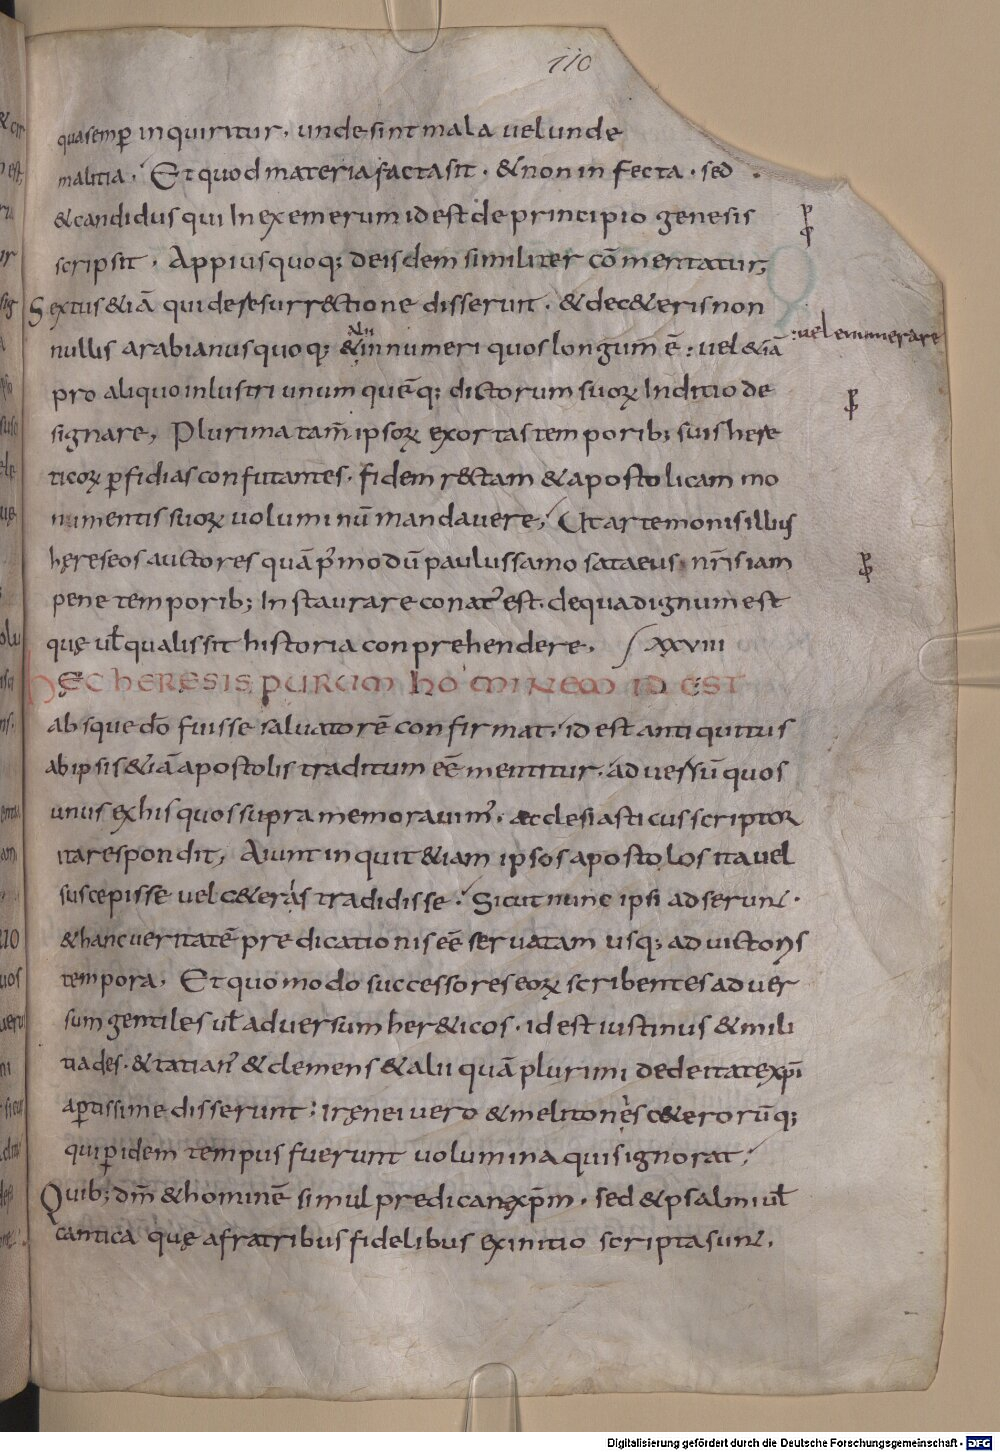 110
qua semꝑ inquiritur, unde sint mala uel unde
malitia. Et quod materia facta sit. & non infecta. sed
& candidus qui In exemerum id est de principio genesis
scripsit. Appius quoq; de isdem similiter cōmentatur,
Sextus &iā qui de resurr&tione disserunt. & de c&eris non
nullis arabianus quoq; & innumeri quos longum ē: uel &iā
alii
: uel enumerare
pro aliquo inlustri unum quēq; dictorum suoꝝ Inditio de
signare, Plurima tam̄ ipsoꝝ exortas temporib; suis here
ticoꝝ ꝑfidias confutantes. fidem r&tam & apostolicam mo
numentis suoꝝ uoluminū mandauere, Ut artemonis illius
hęreseos auctores quā p̄modū paulus samosataeus nr̄is iam
pene temporib; Instaurare conat' est. de qua dignum est
quę ul̄ qualis sit historia conprehendere. XXVIII
HĘC HERESIS PURUM HOMINEM ID EST
absque dō fuisse saluatorē confirmat. id est antiquitus
ab ipsis &iā apostolis traditum eē mentitur. aduersū quos
unus ex his quos supra memorauim'. aecclesiasticus scriptor
ita respondit, Aiunt inquit &iam ipsos apostolos ita uel
suscepisse uel c&eras tradidisse. Sicut nunc ipsi adserunt.
& hanc ueritatē predicationis eē seruatam usq; ad uictoris
tempora, Et quomodo successores eoꝝ scribentes aduer
sum gentiles ul̄ aduersum her&icos. id est iustinus & mili
tiades. & tatian' & clemens & alii quā plurimi de deitate xp̄i
aꝑtissime disserunt; irenei uero & melitones c&erorūq;
qui ꝑ idem tempus fuerunt uolumina quis ignorat,
Quib; dm̄ & hominē simul predicant xp̄m. sed & psalmi ul̄
cantica quę a fratribus fidelibus ex initio scripta sunt.
Digitalisierung gefördert durch die Deutsche Forschungsgemeinschaft - DFG